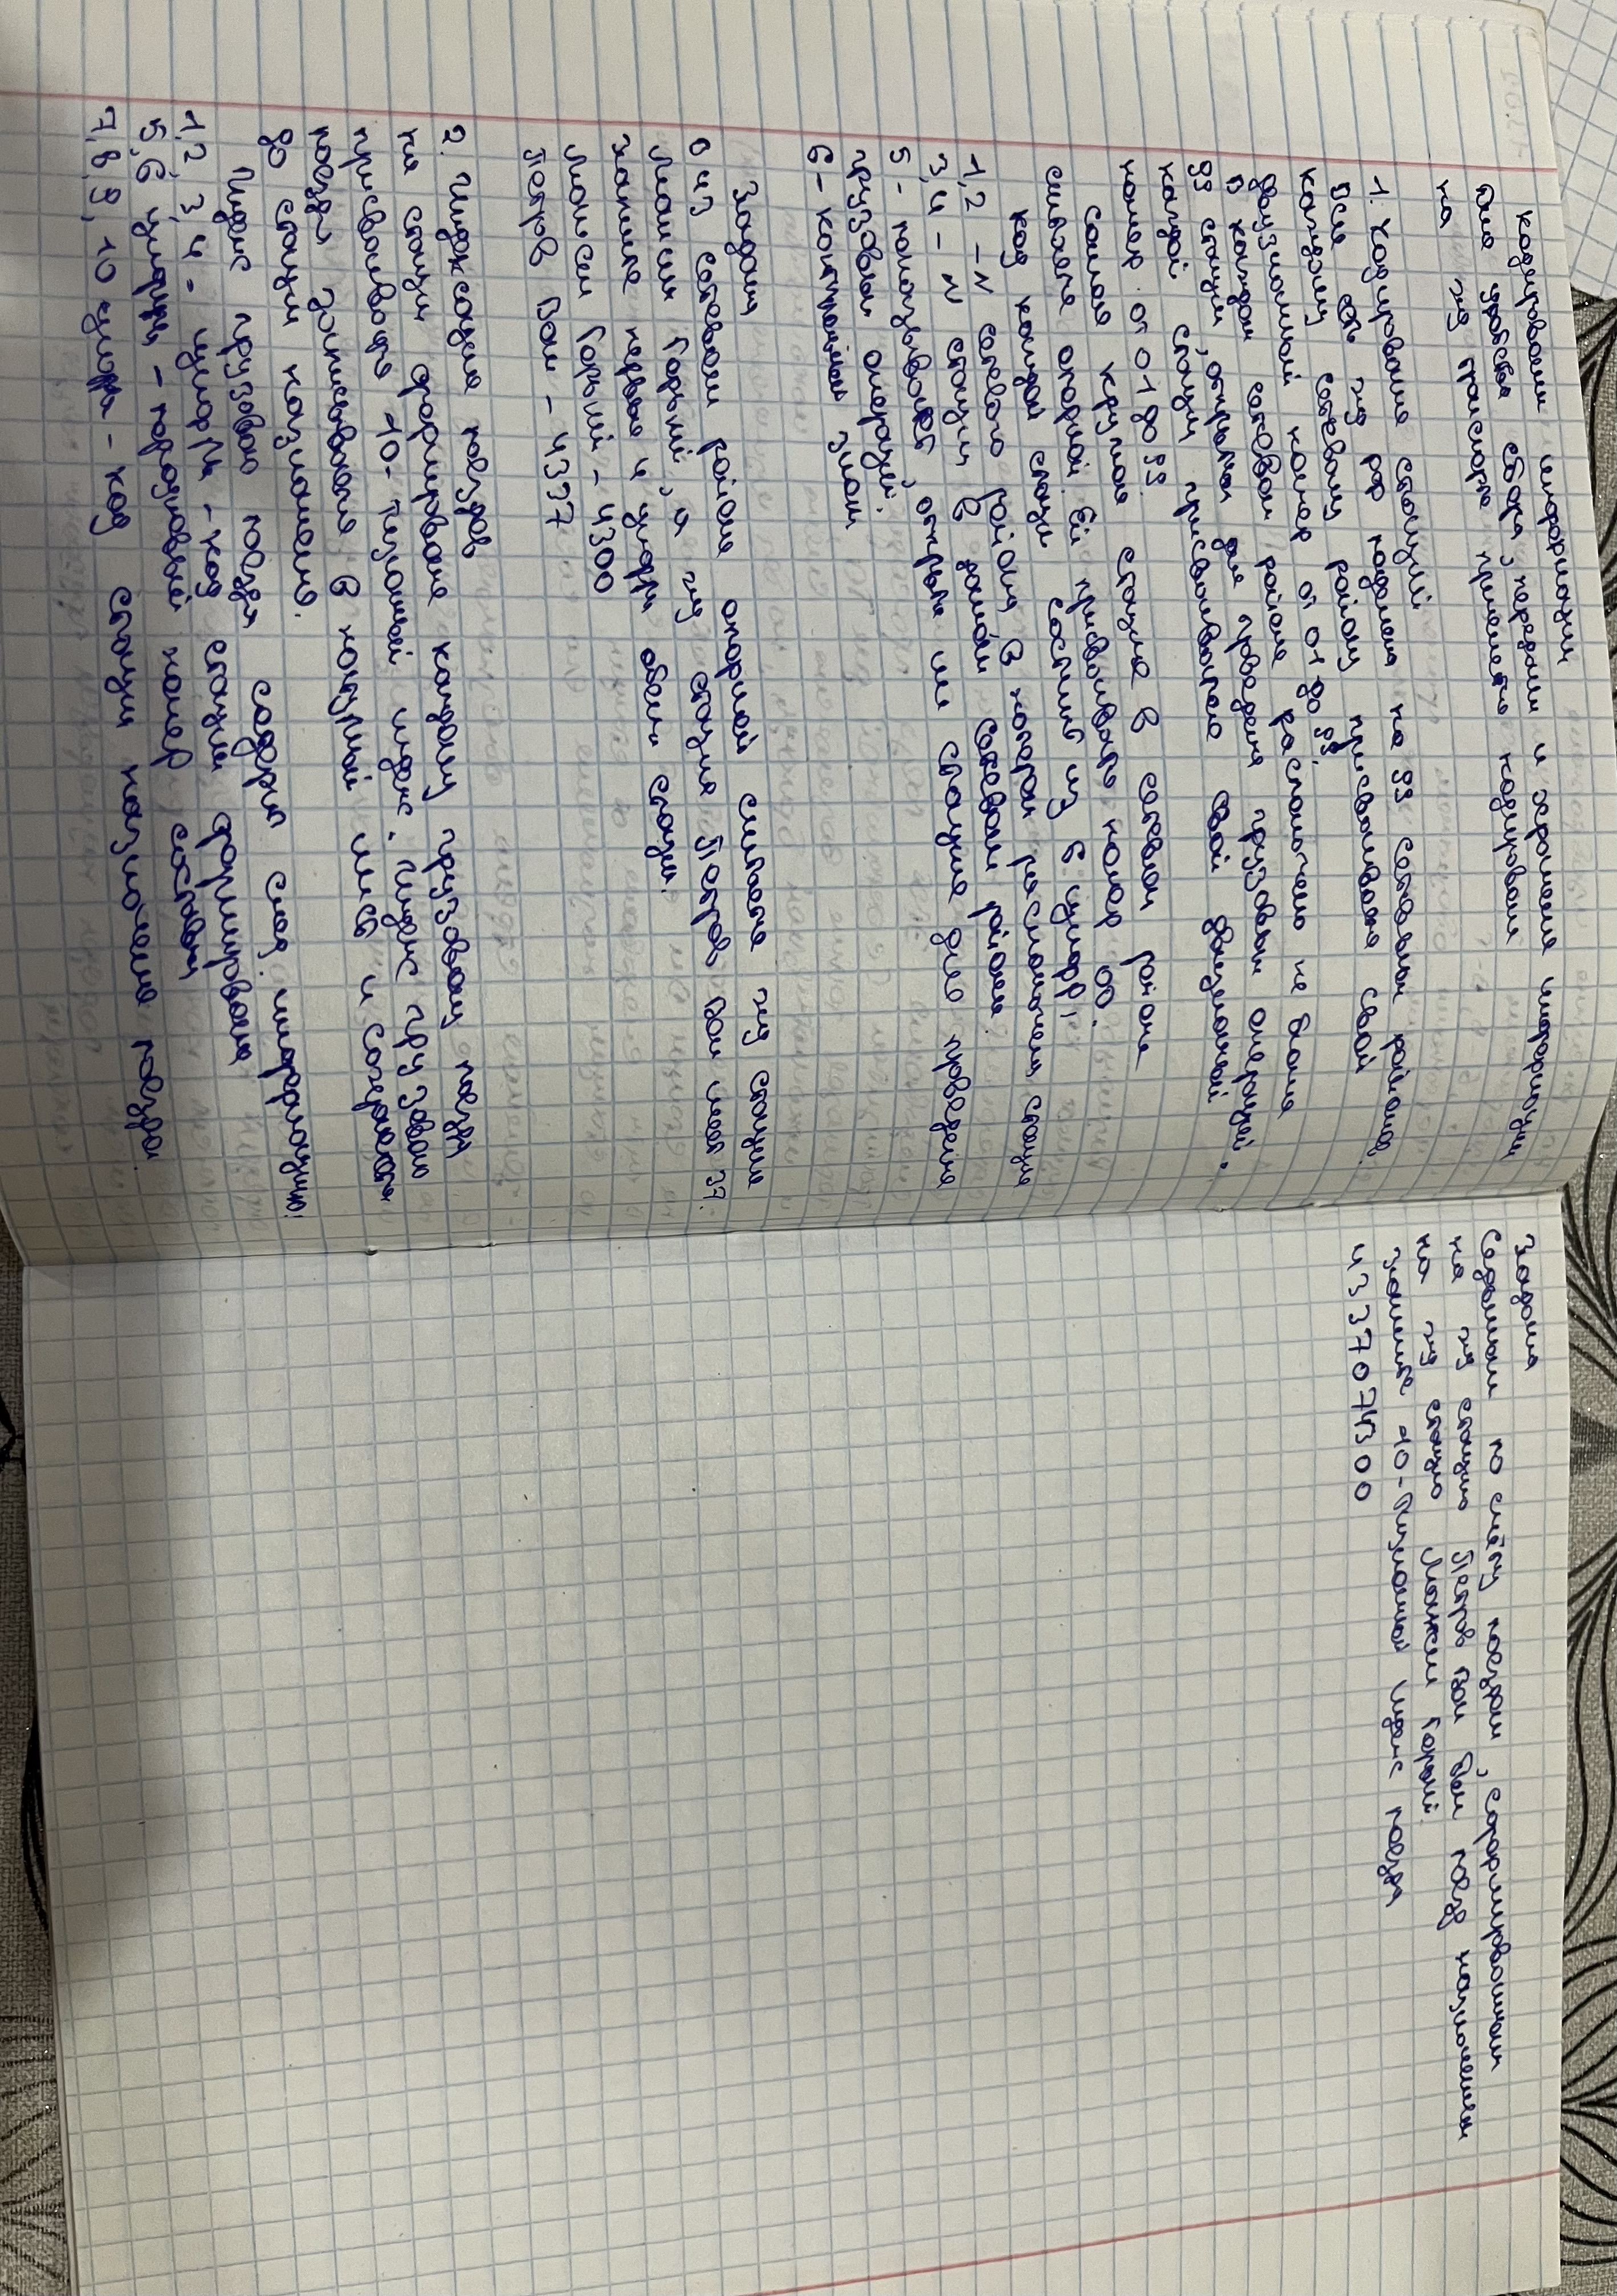 Кодирвани информации
Для удобства сбора, передачи и хранения информации
на жд транспорте применятс кодирвани
1. Кодирвание станций
Вся сеть жд рф поделена на 99 сетевых районов.
Каждому сетевому району присваиваю свой
двузначный номер от 01 до 99.
В каждом сетевом районе расположено не более
99 станций, открытых для проведения грузовых операций.
каждой станци присваивается свой двузначный
номер от 01 до 99.
Самая крупная станция в сетевом районе
считается опорной. Ей присваивается номер 00.
Код каждой станци состоит из 6 цифр,
1,2 - N сетевого района в котором расположена станция
3,4 - N станции в данном сетевом районе
5 - показывает, открыта ли станция для проведения
грузовых операций.
6 - контрольный знак
Задача
В 43 сетевом районе опорной считается жд станция
Лоост Горный, а жд станция Петров Вал имеет 37.
запишите первые 4 цифры обеих станци.
Горный - 4300
Петров Вал - 4337
2. Индексация поездов
на станци формирвания каждому грузовому поезду
присваивается 10-тизначный индекс. Индекс грузового
поезда записывается в натурный лист и сохраняется
до станци назначения.
Индекс грузового поезда содержит след. информацию:
1,2,3,4 - цифры - код станции формирвания
5,6 цифры - порядковый номер состава
7,8,9,10 цифра - код станции назначения поезда.
Задача
Седьмым по счёту поездом, сформирванным
на жд станцию Петров Вал был поезд назначением
на жд станцию Горный.
запишите 10-тизначный индекс поезда
4337074300